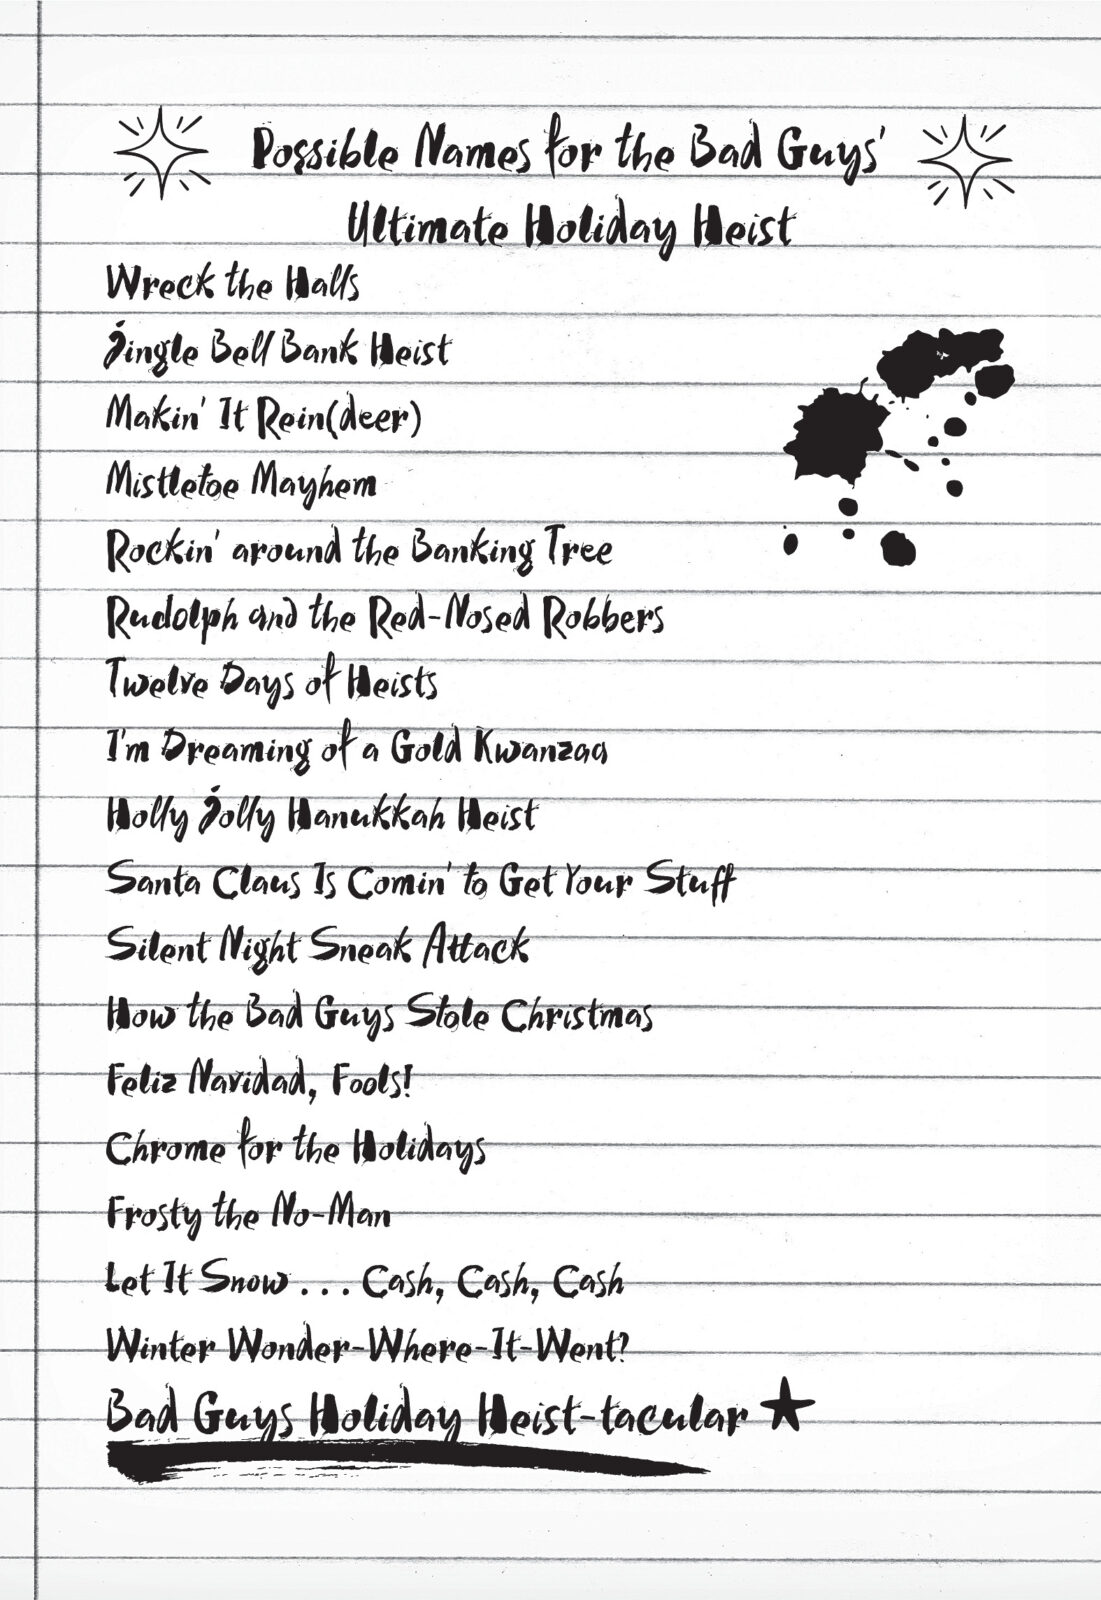 Possible Names for the Bad Guys'
Ultimate Holiday Heist
Wreck the Halls
Jingle Bell Bank Heist
Makin' It Rein(deer)
Mistletoe Mayhem
Rockin' around the Banking Tree
Rudolph and the Red-Nosed Robbers
Twelve Days of Heists
I'm Dreaming of a Gold Kwanzaa
Holly Jolly Hanukkah Heist
Santa Claus Is Comin' to Get Your Stuff
Silent Night Sneak Attack
How the Bad Guys Stole Christmas
Feliz Navidad, Fools!
Chrome for the Holidays
Frosty the No-Man
Let It Snow . . . Cash, Cash, Cash
Winter Wonder-Where-It-Went?
Bad Guys Holiday Heist-tacular